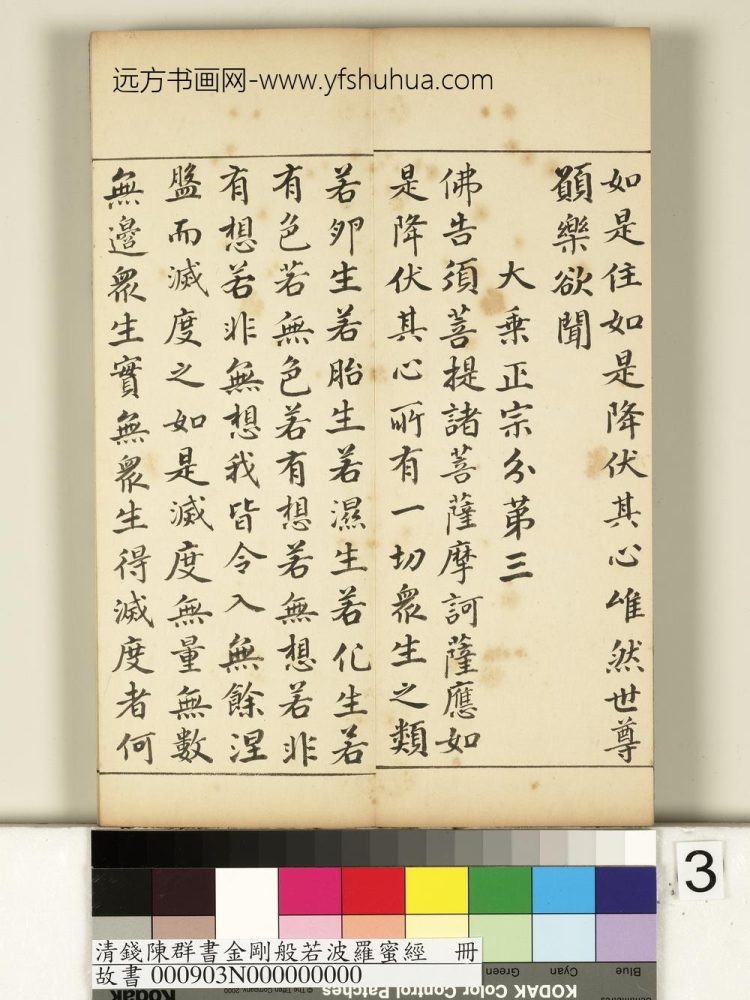 远方书画网-www.yfshuhua.com
如是住如是降伏其心唯然世尊
願樂欲聞
大乗正宗分第三
佛告須菩提諸菩薩摩訶薩應如
是降伏其心所有一切衆生之類
若卵生若胎生若濕生若化生若
有色若無色若有想若無想若非
有想若非無想我皆令入無餘涅
盤而滅度之如是滅度無量無數
無邊衆生實無衆生得滅度者何
3
清錢陳群書金剛般若波羅蜜經 冊
故書 000903N000000000
Green
Cyan
Blue
Kodak
© The Tiffen Company, 2000
KODAK Color Control Patches